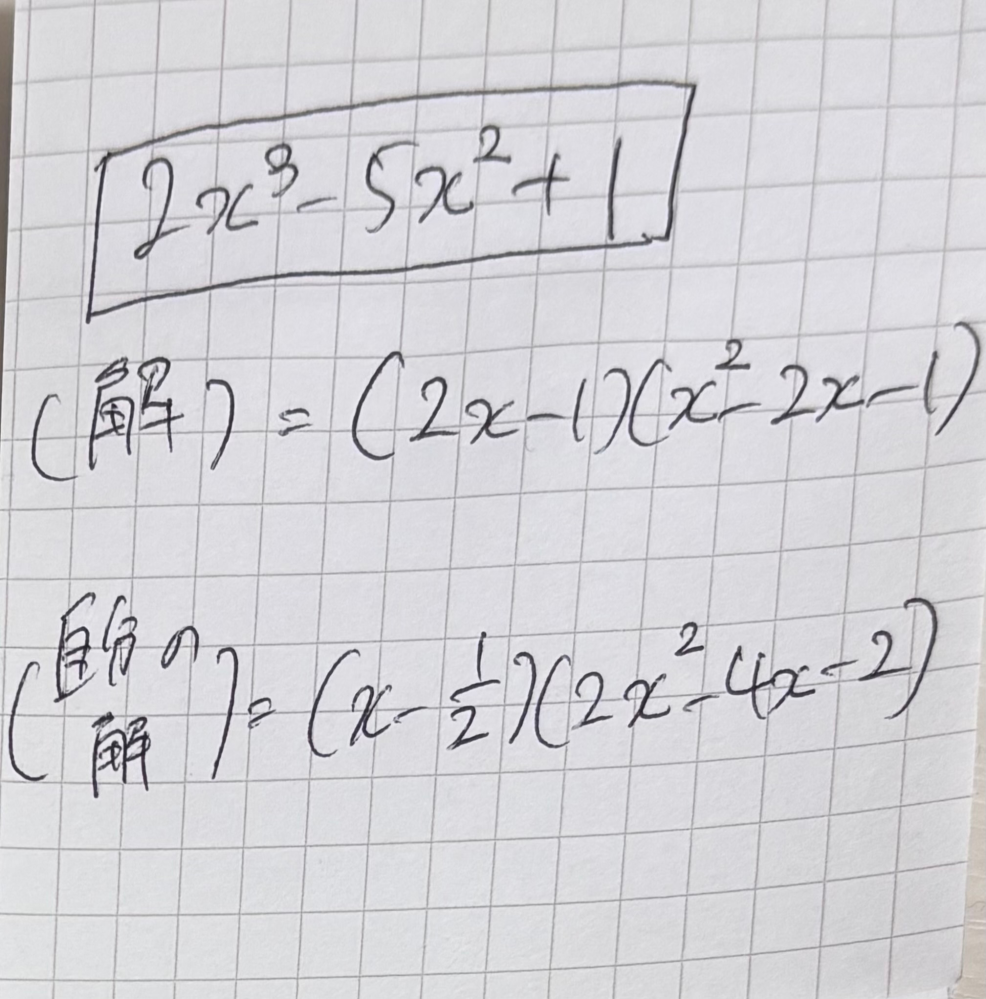 2x³-5x²+1
(解)=(2x-1)(x²-2x-1)
(自分の解)=(x-1/2)(2x²-4x-2)